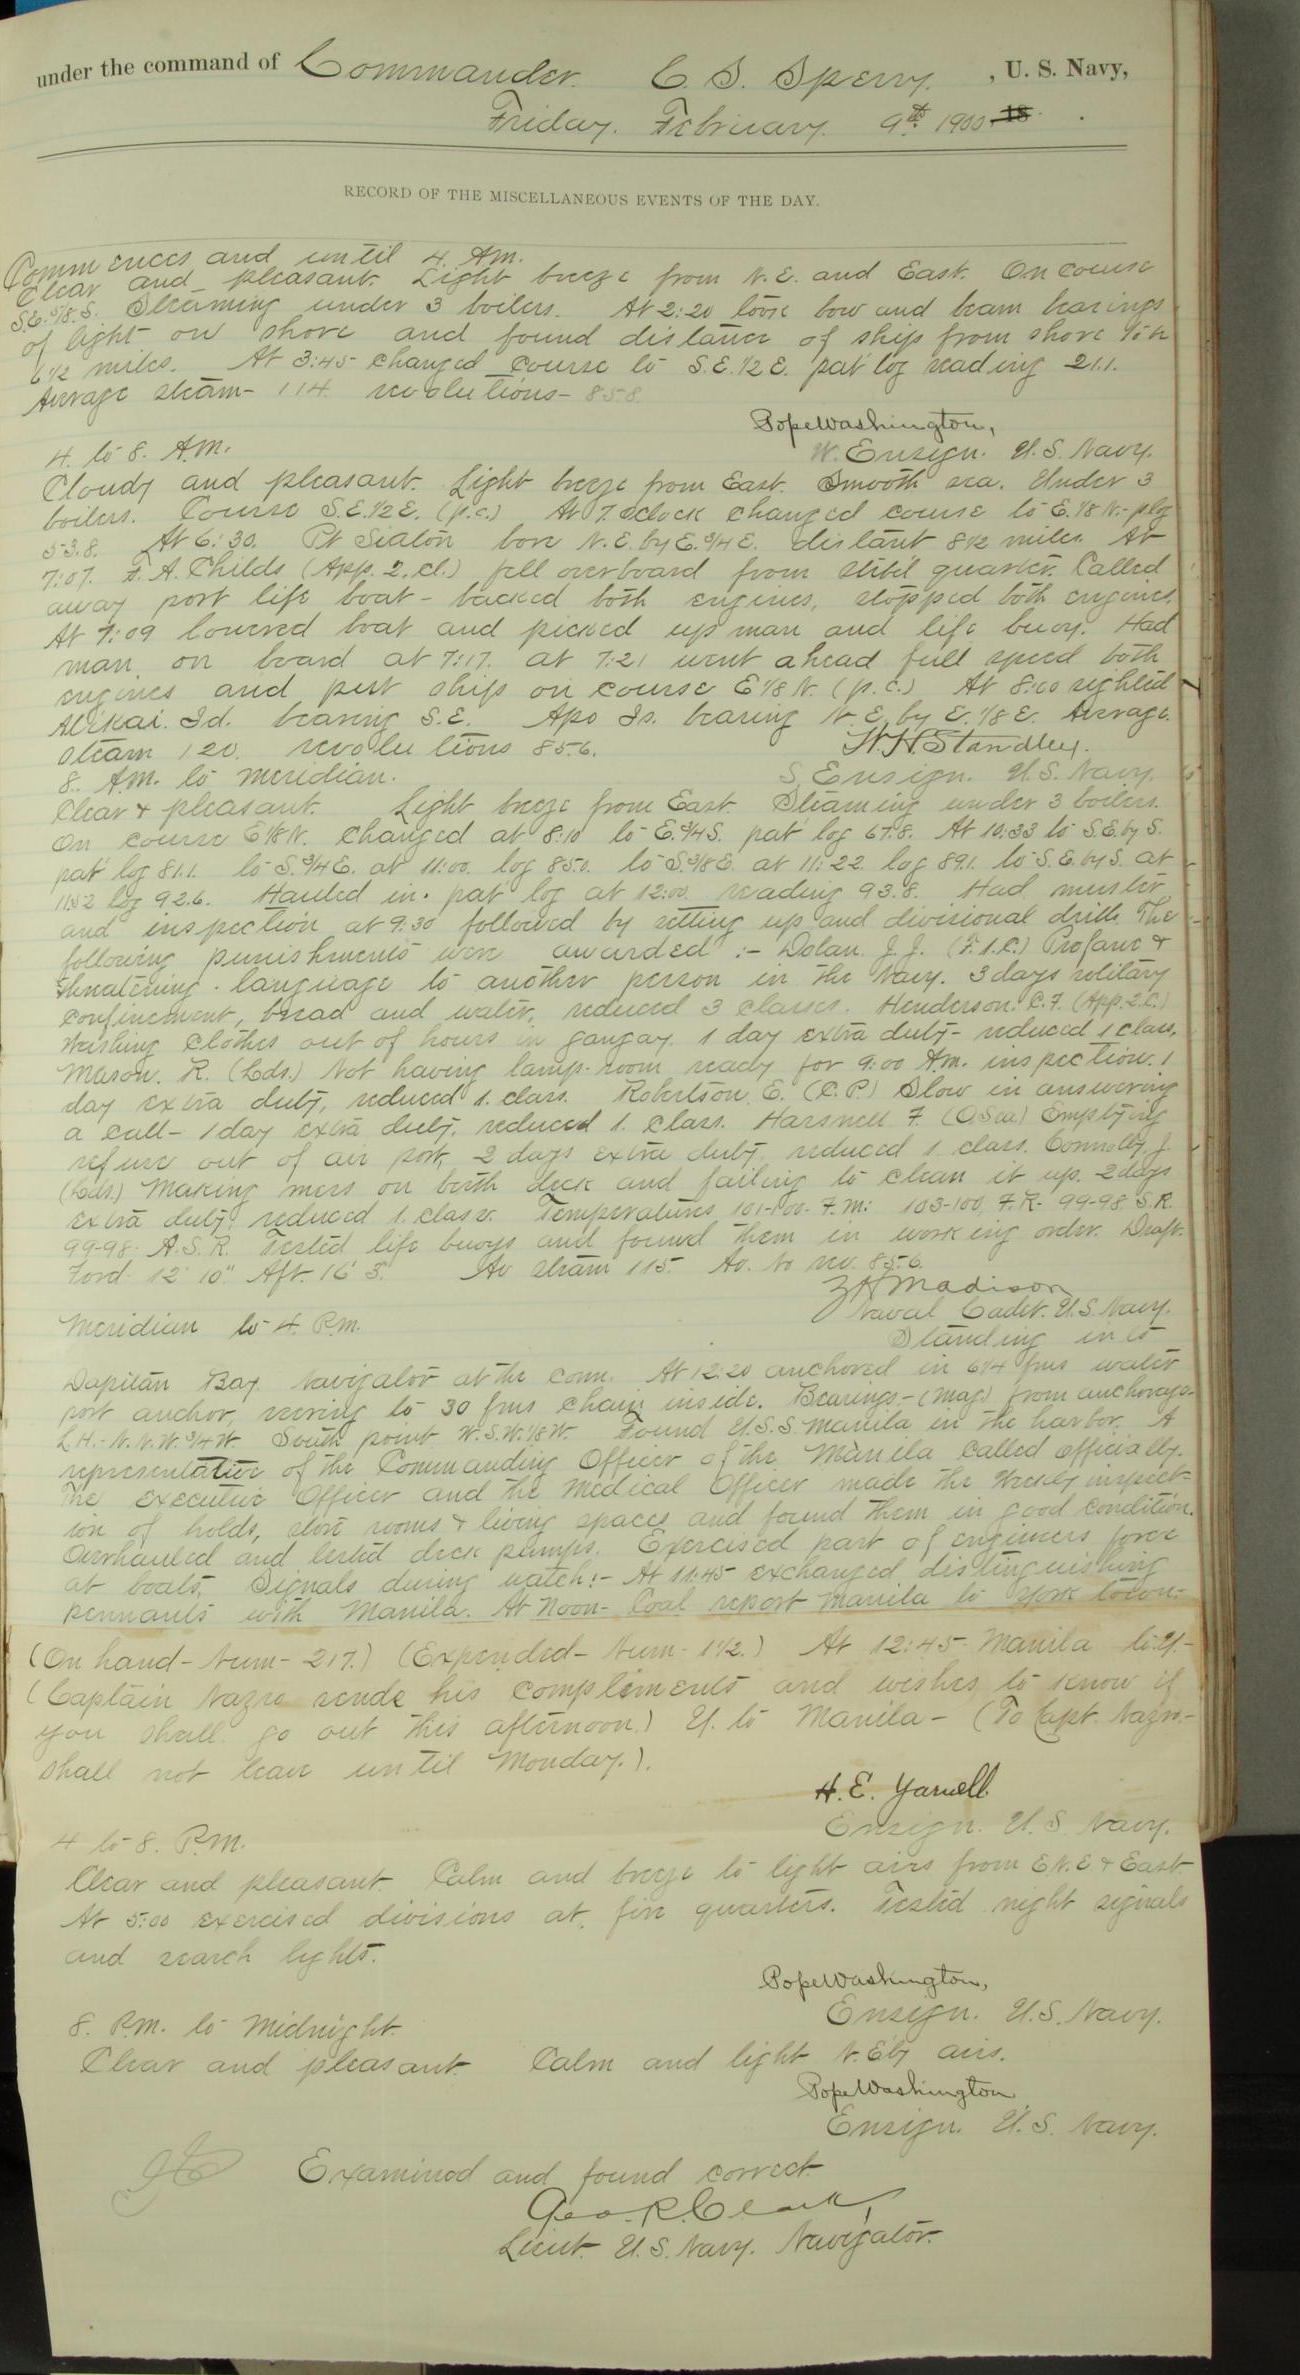 under the command of Commander. C. S. Sperry. , U. S. Navy,
Friday. February. 9th. 1900 18 .
RECORD OF THE MISCELLANEOUS EVENTS OF THE DAY.
Commences and until 4. Am.
Clear and pleasant. Light breeze from N.E. and East. On course
S.E. 5/8. S. Steaming under 3 boilers. At 2:20 took bow and beam bearings
of light on shore and found distance of ship from shore to be
6 1/2 miles. At 3:45 changed course to S.E. 1/2 E. pat log reading 21.1.
Average steam- 114. revolutions- 85.8
Pope Washington,
4. to 8. A.M.
W. Ensign. U.S. Navy.
Cloudy and pleasant. Light breeze from East. Smooth sea. Under 3
boilers. Course S.E. 1/2 E. (p.c.) At 7. oclock changed course to E. 1/8 N. - plg
53.8. At 6:30. Pt Siaton bore N.E. by E. 3/4 E. distant 8 1/2 miles. At
7:07. F. A. Childs (App. 2. cl.) fell overboard from stb'd quarter. Called
away port life boat - backed both engines, stopped both engines.
At 7:09 lowered boat and picked up man and life buoy. Had
man on board at 7:17. at 7:21 went ahead full speed both
engines and put ship on course E 1/8 N. (p.c.) At 8:00 sighted
Id. bearing S.E. Apo Is. bearing N.E. by E. 1/8 E. Average.
steam 120. revolutions 85.6. W.H. Standley.
8. A.M. to meridian.
S. Ensign. U.S. Navy.
Clear & pleasant. Light breeze from East. Steaming under 3 boilers.
On course E 1/8 N. Changed at 8:10 to E. 3/4 S. pat' log 67.8. At 10:33 to S.E. by S.
pat' log 81.1. to S. 3/4 E. at 11:00. log 85.0. to S. 3/8 E. at 11:22. log 89.1. to S.E. by S. at
11:52 log 92.6. Hauled in. pat' log at 12:00. reading 93.8. Had muster
and inspection at 9.30 followed by setting up and divisional drills. The
following punishments were awarded :- Dolan. J. J. (F. 1. C.) Profane &
threatening . language to another person in the Navy. 3 days solitary
confinement, bread and water, reduced 3 classes. Henderson. C. F. (App. 2. C.)
Washing clothes out of hours in gangay. 1 day extra duty - reduced 1 class.
Mason. R. (Lds.) Not having lamp-room ready for 9:00 A.m. inspection. 1
day extra duty, reduced 1. class. Robertson. E. (C. P.) Slow in answering
a call - 1 day extra duty. reduced 1. class. Harsnell F. (O.Sea.) Emptying
refuse out of air port, 2 days extra duty. reduced 1. class. Connolly. J.
(Lds.) Making mess on berth deck and failing to clean it up. 2 days
extra duty. reduced 1. class. Temperatures 101-100. F.M: 103-100, F.R- 99-98. S.R.
99-98. A.S.R. Tested life buoys and found them in working order. Draft.
Ford. 12' 10" Aft. 16' 3". Av steam 115. Av. No rev. 85.6.
Z H Madison
Naval Cadet. U.S. Navy.
Meridian to 4. P.m.
Standing into
Dapitan Bay. Navigator at the conn. At 12:20 anchored in 6 1/4 fms water
port anchor, veering to 30 fms chain inside. Bearings- (mag) from anchorage-
L.H. - N.N.W. 3/4 W. South point W.S.W. 1/8 W. Found U.S.S. Manila in the harbor. A
representative of the Commanding Officer of the Manila called officially.
The executive Officer and the Medical Officer made the weekly inspect-
ion of holds, store rooms & living spaces and found them in good condition.
Overhauled and tested deck pumps. Exercised part of engineers force
at boats. Signals during watch :- At 11:45 exchanged distinguishing
pennants with Manila. At Noon- Coal report Manila to York
(On hand - Num- 217.) (Expended - Num- 1 1/2.) At 12:45 Manila to Y.-
(Captain Nazro sends his compliments and wishes to know if
you shall go out this afternoon.) Y. to Manila - (To Capt. Nazro.-
shall not leave until Monday.).
H. E. Yarnell.
Ensign. U.S. Navy.
4 to 8. P.M.
Clear and pleasant. Calm and breeze to light airs from E.N.E & East
At 5:00 exercised divisions at fire quarters. Tested night signals
and search lights.
Pope Washington,
Ensign. U.S. Navy.
8. P.M. to Midnight.
Clear and pleasant. Calm and light N.E'ly airs.
Pope Washington
Ensign. U.S. Navy.
Examined and found correct
Geo. R. Clark,
Lieut. U.S. Navy. Navigator.